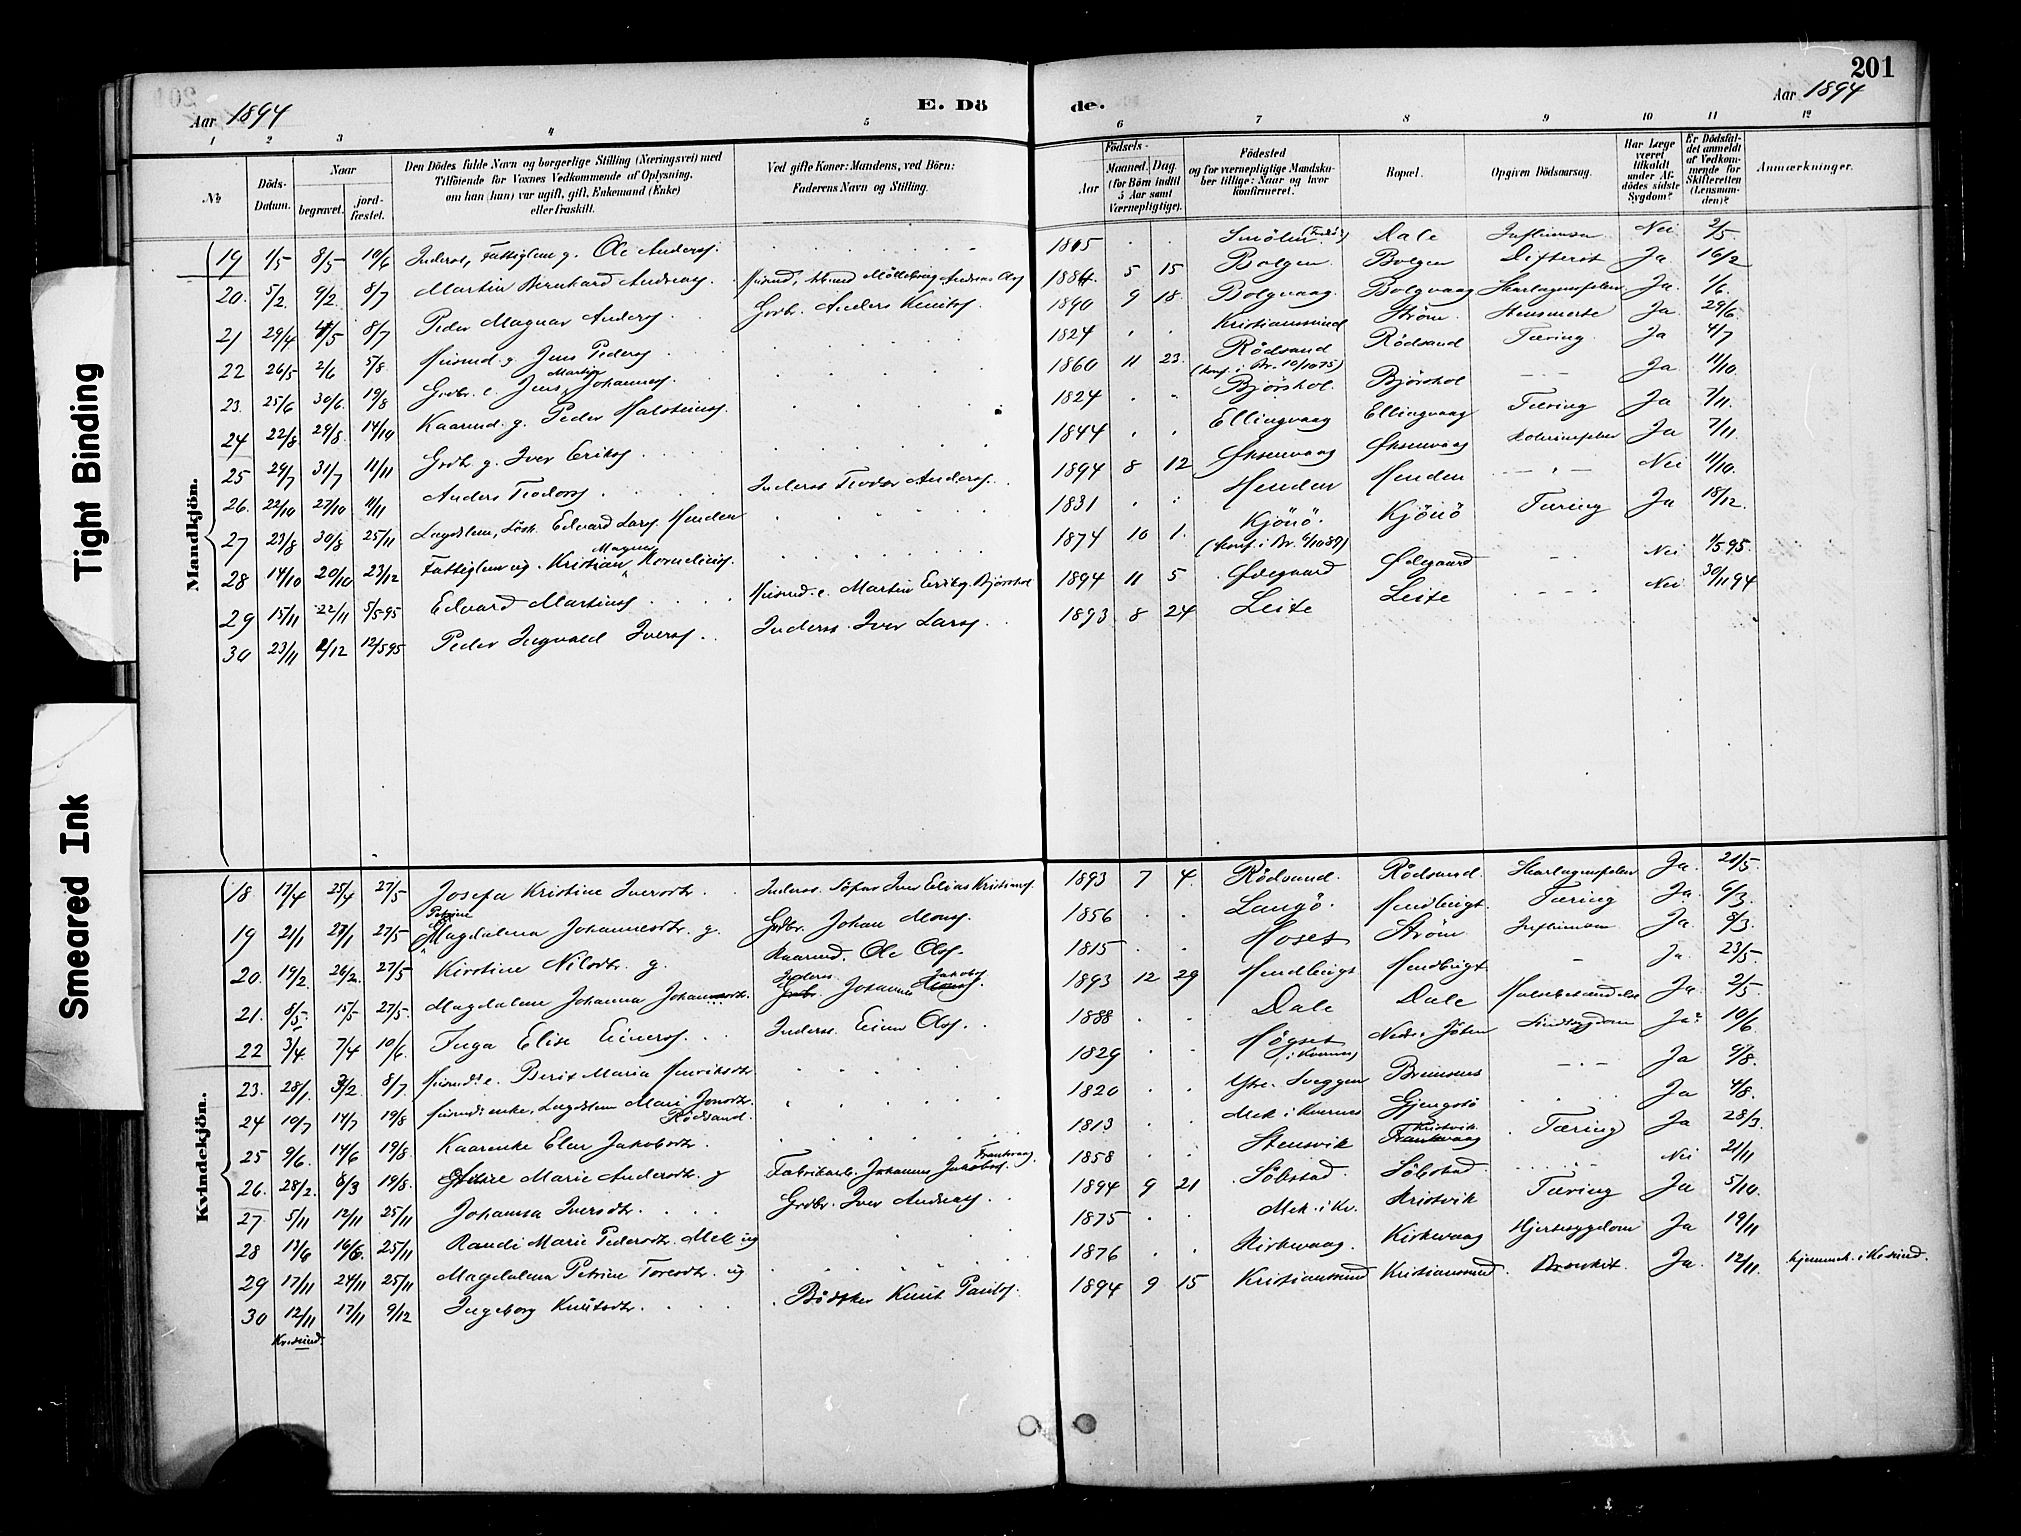 201
Aar 1894 E. Dö de. Aar 1894
1 2 3 4 5 6 7 8 9 10 11 12
№ Döds-Datum. Naar begravet. jordfæstet. Den Dödes fulde Navn og borgerlige Stilling (Næringsvei) med Tilföiende for Voxnes Vedkommende af Oplysning. om han (hun) var ugift, gift, Enkemand (Enke) eller fraskilt. Ved gifte Koner: Mandens, ved Börn: Faderens Navn og Stilling. Födsels- Aar Maaned. Dag (for Börn indtil 5 Aar samt Værnepligtige). Födested og for værnepligtige Mandskaber tillige: Naar og hvor konfirmeret. Bopæl. Opgiven Dödsaarsag. Har Læge været tilkaldt under Afdödes sidste Sygdom? Er Dödsfaldet anmeldt af Vedkommende for Skifteretten (Lensmanden)? Anmærkninger.
Mandkjön.
19 1/5 8/5 10/6 Inderst, Fattiglem g. Ole Anders. 1815 Smölen Dale Nei 2/5
20. 5/2 9/2 8/7 Martin Bernhard Andreas. 1884 5 15 Bolgen Bolgen Difterit Ja 16/2
21 29/4 4/5 8/7 Peder Magnar Anders. Grdbr. Anders Knuts. 1890 9 18 Bolgvaag Bolgvaag Skarlagensfeber Ja 1/6
22 26/5 2/6 5/8 Huusmd. g. Jens Peders. 1824 Kristianssund Ström Ja 29/6
23. 25/6 30/6 19/8 Grdbr. e. Jens Martin Johannes. 1860 11 23. Rödsand (konf. i Br. 10/10 75) Rödsand Tæring Ja 4/7
24 22/8 29/8 14/10 Kaarmd. g. Peder Halsteins. 1824 Björshol Björshol Ja 11/10
25 29/7 31/7 11/11 Grdbr. g. Iver Eriks. 1844 Ellingvaag Ellingvaag Tæring Ja 7/11
26. 22/10 27/10 11/11 Anders Teodors. Inderst Teodor Anders. 1894 8 12 Øksenvaag Øksenvaag Ja 7/11
27 23/8 30/8 25/11 Lægdslem, Edvard Lars. Henden 1831 Henden Henden Nei 11/10
28 14/10 20/10 23/12 Fattiglem ug. Kristian Magnus Kornelius. 1874 10 1. Kjönö. (konf. i Br. 6/10 89) Kjönö Tæring Ja 18/12
29 15/11 22/11 5/5 95 Edvard Martins. Huusmd. e. Martin Eriks. Björshol 1894 11 5 Ødegaard Ødegaard Nei 1/5 95
30 23/11 2/12 12/5 95 Peder Ingvald Ivers. Inderst Iver Lars. 1893 8 24 Leite Leite Nei 30/11 94
Kvindekjön.
18 17/4 25/4 27/5 Josefa Kristine Iversdtr. Inderst. Iver Elias Kristians. 1893 7 4. Rödsand. Rödsand. Skarlagensfeber Ja 21/5
19 21/1 28/1 27/5 Petrine Magdalena Johannesdtr. g. Grdbr. Johan Mons. 1856 Langö. Hendbrigt. Tæring Ja 6/3
20. 19/2 26/2 27/5 Kirstine Nilsdtr. g. Kaarmd. Ole Ols. 1815 Hoset Ström Ja 8/3
21. 8/5 15/5 27/5 Magdalene Johanna Johannesdtr. Inderst. Johannes Jakobs. 1893 12 29 Hendbrigt Hendbrigt Ja 23/5
22 3/4 7/4 10/6 Inga Elise Einers. Inderst. Einer Ols. 1888 Dale Dale Ja 2/5
23. 28/1 3/2 8/7 Huusmd. e. Berit Maria Henriksdtr. 1829 Högset (i Kvernes) Nedre Jöten Ja 10/6
24 10/7 14/7 19/8 Huusmdsenke, Lægdslem Mari Jonsdtr. Rödsand. 1820 Ytre Sveggen Bremsnes Ja 9/8
25 9/6. 14/6 19/8 Kaarenke Elen Jakobsdtr. 1813 Mek i Kvernes Gjengstö Ja 4/8
26. 28/2 8/3 19/8. Marie Andersdtr. g Fabrikarb. Johannes Jakobs. Frankvaag 1858 Stensvik Kristvik Frankvaag Tæring Ja 28/3
27. 5/11 12/11 25/11 Johanna Iversdtr. Grdbr. Iver Andreas. 1894 9 21 Söbstad Söbstad Nei 21/11
28 13/6 16/6 25/11 Randi Marie Pedersdtr. Mek ug 1875 Mek i Kv. Kristvik Tæring Ja 5/10
29 17/11 24/11 25/11 Magdalena Petrine Toresdtr. ug 1876 Kirkevaag. Kirkevaag Hjertesygdom Ja 19/11
30 12/11 17/11 9/12 Ingeborg Knutsdtr. Bödker Knut Pauls. 1894 9 15 Kristianssund Kristianssund. Bronkit. Ja 12/11 hjemmed. i Kr.sund.
Kr.sund.
Tight Binding
Smeared Ink